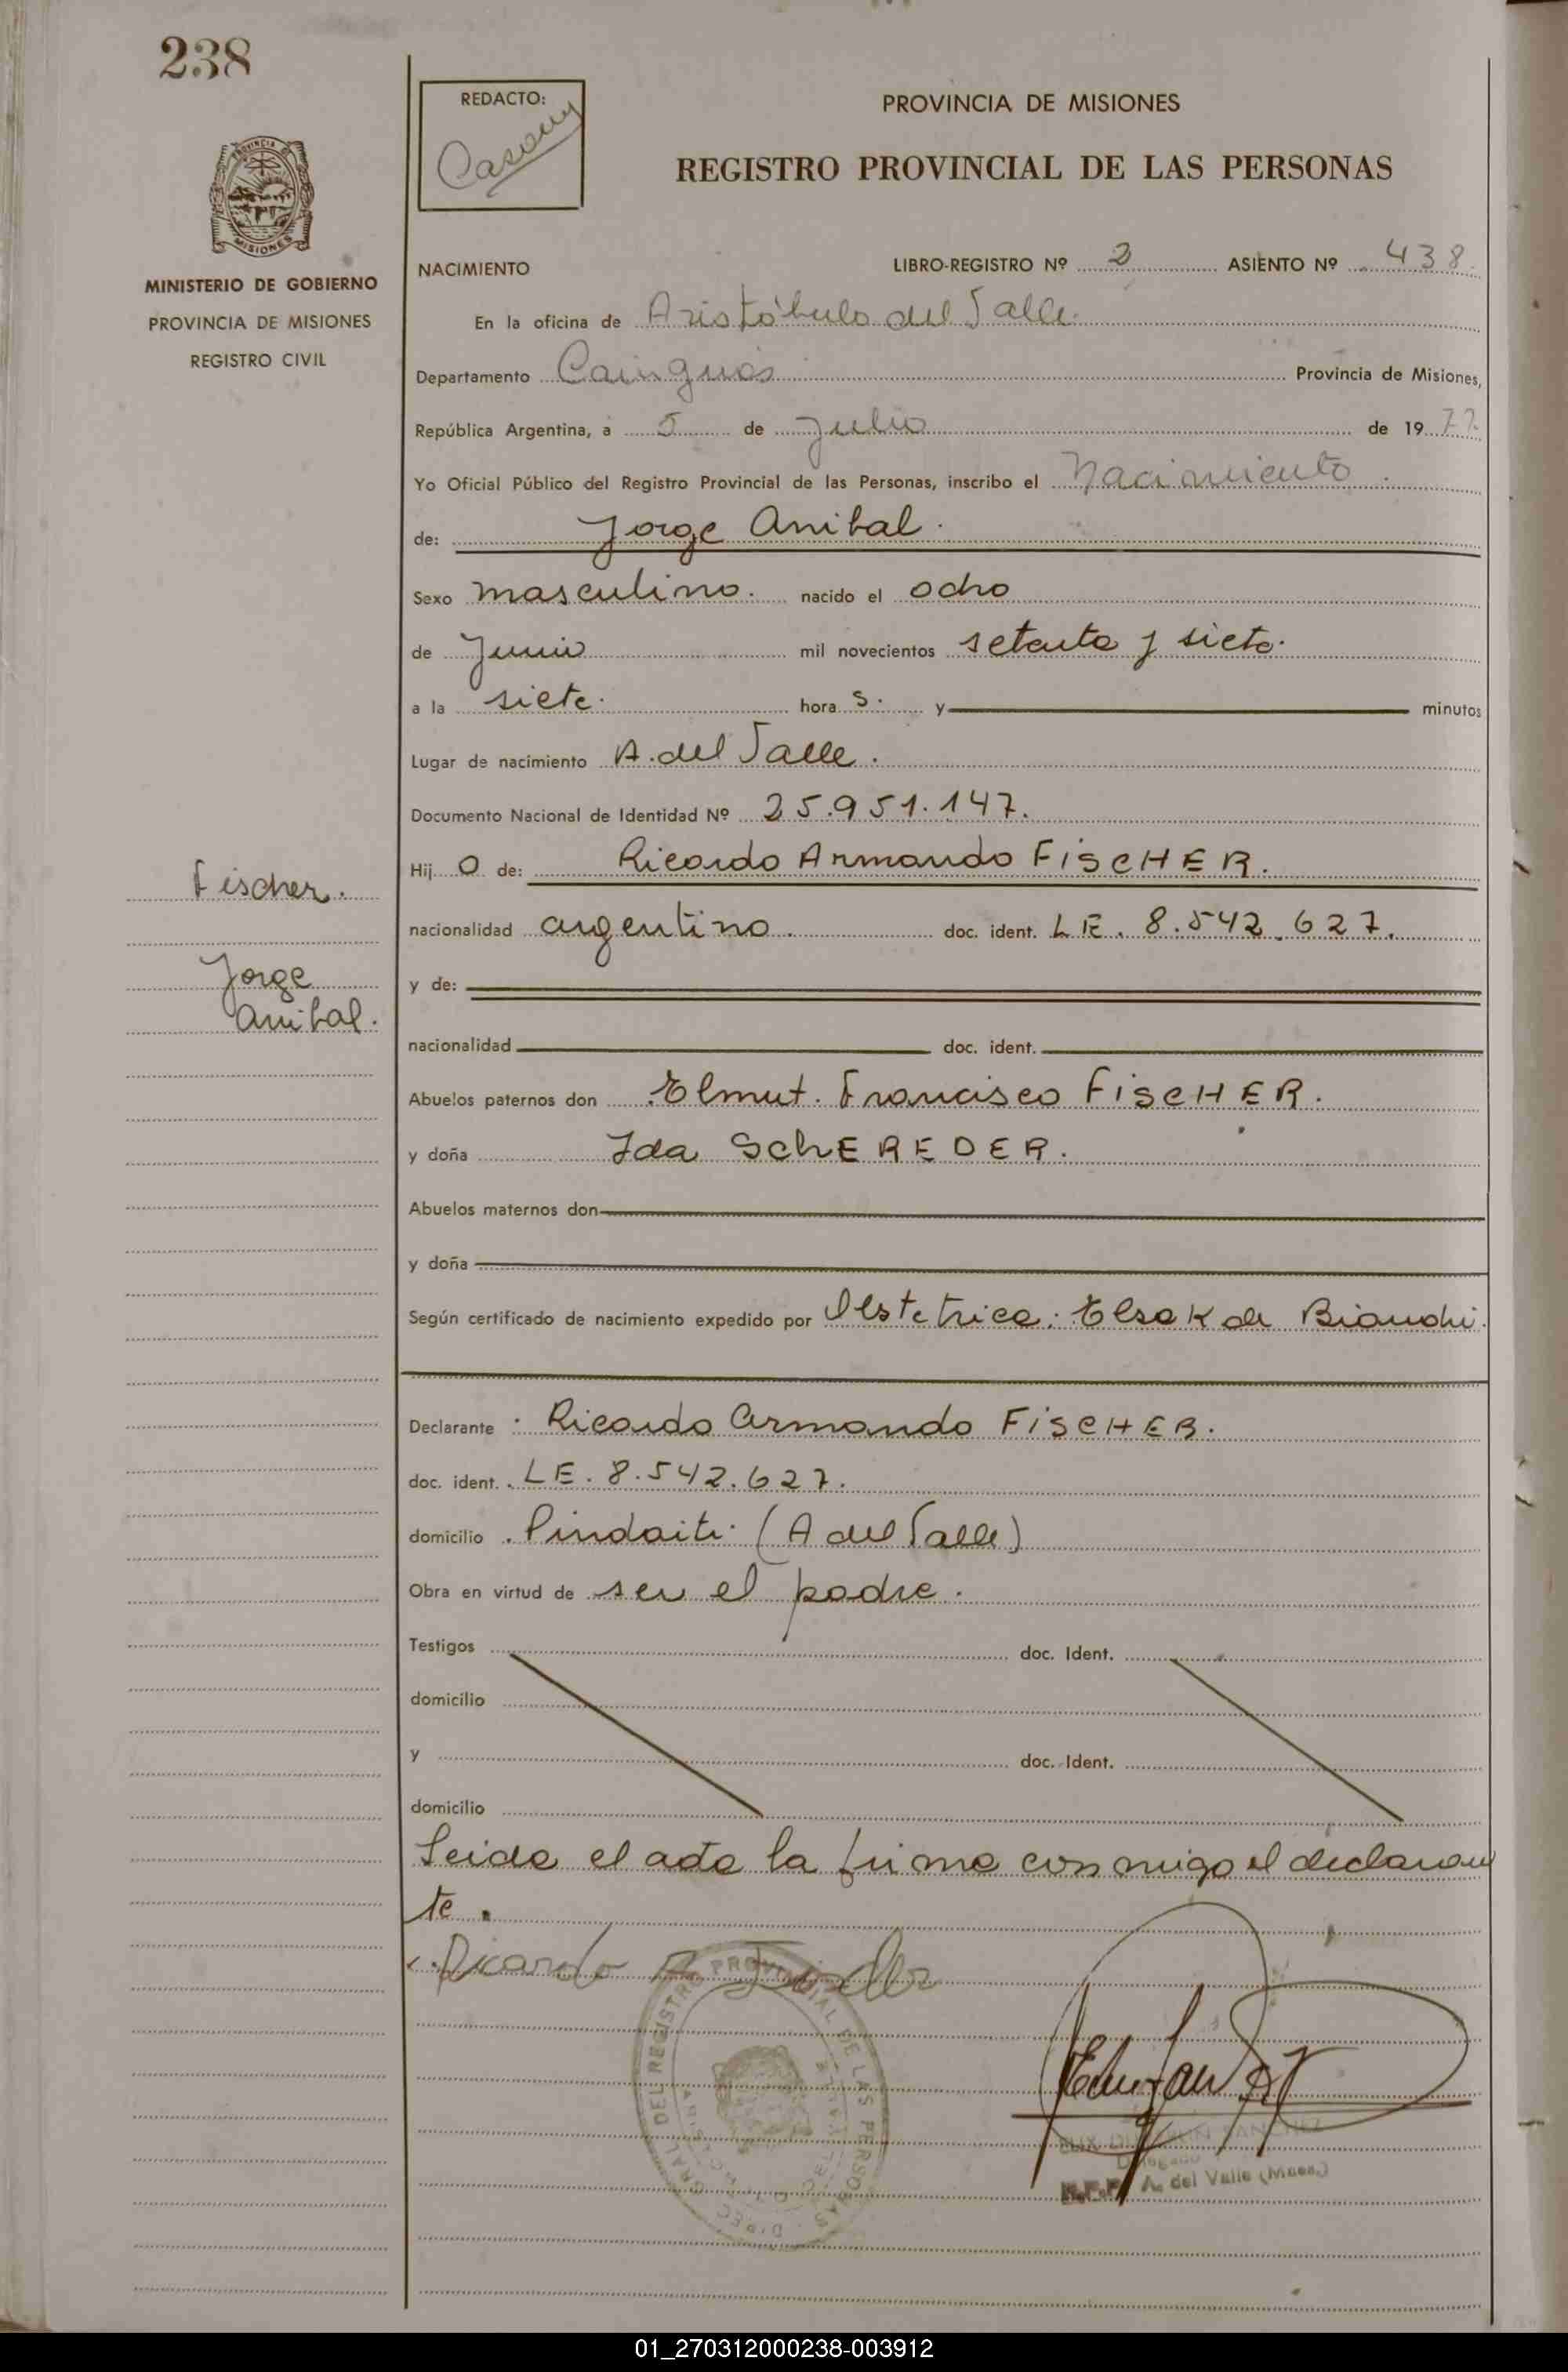 238
REDACTO:
PROVINCIA DE MISIONES
REGISTRO PROVINCIAL DE LAS PERSONAS
PROVINCIA DE
MISIONES
MINISTERIO DE GOBIERNO
PROVINCIA DE MISIONES
REGISTRO CIVIL
NACIMIENTO LIBRO-REGISTRO Nº 2 ASIENTO Nº 438
En la oficina de Aristóbulo del Valle.
Departamento Cainguás Provincia de Misiones,
República Argentina, a 5 de Julio de 1977.
Yo Oficial Público del Registro Provincial de las Personas, inscribo el Nacimiento
de: Jorge Anibal.
Sexo masculino. nacido el ocho
de Junio mil novecientos setenta y siete.
a la siete. hora s. y minutos
Lugar de nacimiento A. del Valle.
Documento Nacional de Identidad Nº 25.951.147.
Fischer.
Hij o de: Ricardo Armando FiSCHER.
nacionalidad argentino. doc. ident. LE. 8.542.627.
Jorge
Anibal.
y de:
nacionalidad doc. ident.
Abuelos paternos don Elmut. Francisco FiSCHER.
y doña Ida SchEREDER.
Abuelos maternos don
y doña
Según certificado de nacimiento expedido por Obstetrica: Elsa K de Bianchi.
Declarante : Ricardo Armando FiSCHER.
doc. ident. LE. 8.542.627.
domicilio . Pindaiti. (A del Valle)
Obra en virtud de ser el padre.
Testigos doc. Ident.
domicilio
y doc. Ident.
domicilio
Leida el acta la firma conmigo el declaran
te.
Ricardo A
DIREC. GRAL. DEL REGISTRO PROVINCIAL DE LAS PERSONAS
Delegado
A. del Valle (Mnes.)
01_270312000238-003912